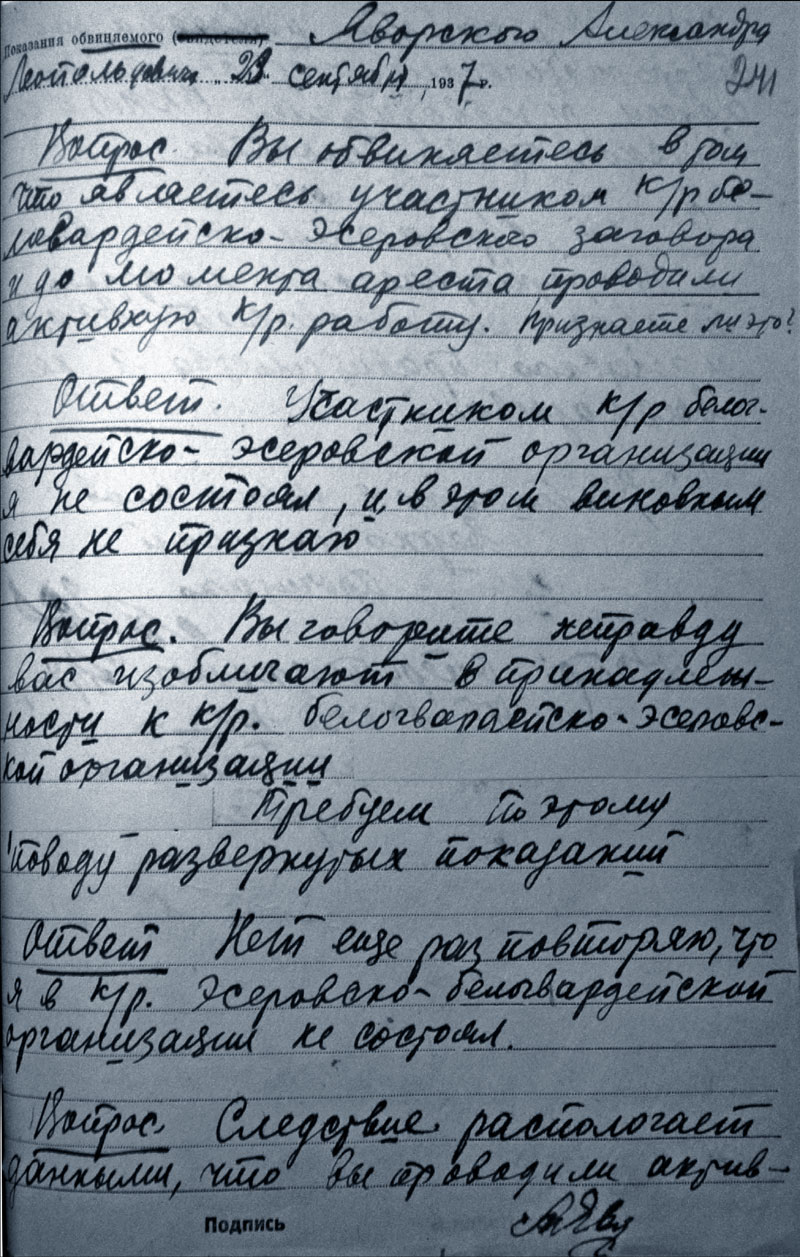 Показания обвиняемого (свидетеля) Яворского Александра
Леопольдовича „28 сентября 1937 г.
241
Вопрос. Вы обвиняетесь в том
что являетесь участником к/р бе-
логвардейско-эсеровского заговора
и до момента ареста проводили
активную к/р. работу. Признаете ли это?
Ответ. Участником к/р белог-
вардейско-эсеровской организации
я не состоял, и в этом виновным
себя не признаю
Вопрос. Вы говорите неправду
вас изобличают в принадлеж-
ности к к/р. белогвардейско-эсеровс-
кой организации
Требуем по этому
поводу развернутых показаний
Ответ Нет еще раз повторяю, что
я в к/р. эсеровско-белогвардейской
организации не состоял.
Вопрос. Следствие распологает
данными, что вы проводили актив-
Подпись